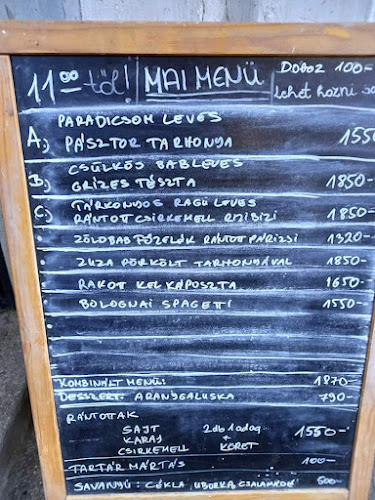 11 00 -tól! MAI MENÜ Doboz 100-
lehet hozni
PARADICSOM LEVES
A) PÁSZTOR TARHONYA 1550
CSÜLKÖS BABLEVES
B) GRÍZES TÉSZTA 1850-
C) TÁRKONYOS RAGÜ LEVES
RÁNTOTT CSIRKEMELL RIZIBIZI 1850-
• ZÖLDBAB FŐZELÉK RÁNTOTT PÁRIZSI 1320-
• ZUZA PÖRKÖLT TARHONYÁVAL 1850-
• RAKOTT KELKÁPOSZTA 1650-
• BOLOGNAI SPAGETTI 1550-
KOMBINÁLT MENÜ: 1870-
DESSZERT: ARANYGALUSKA 790-
RÁNTOTTAK
SAJT 2db 1 adag
KARAJ + 1550-
CSIRKEMELL KÖRET
TARTÁR MÁRTÁS 100-
SAVANYÚ: CÉKLA, UBORKA, CSALAMÁDÉ 500-